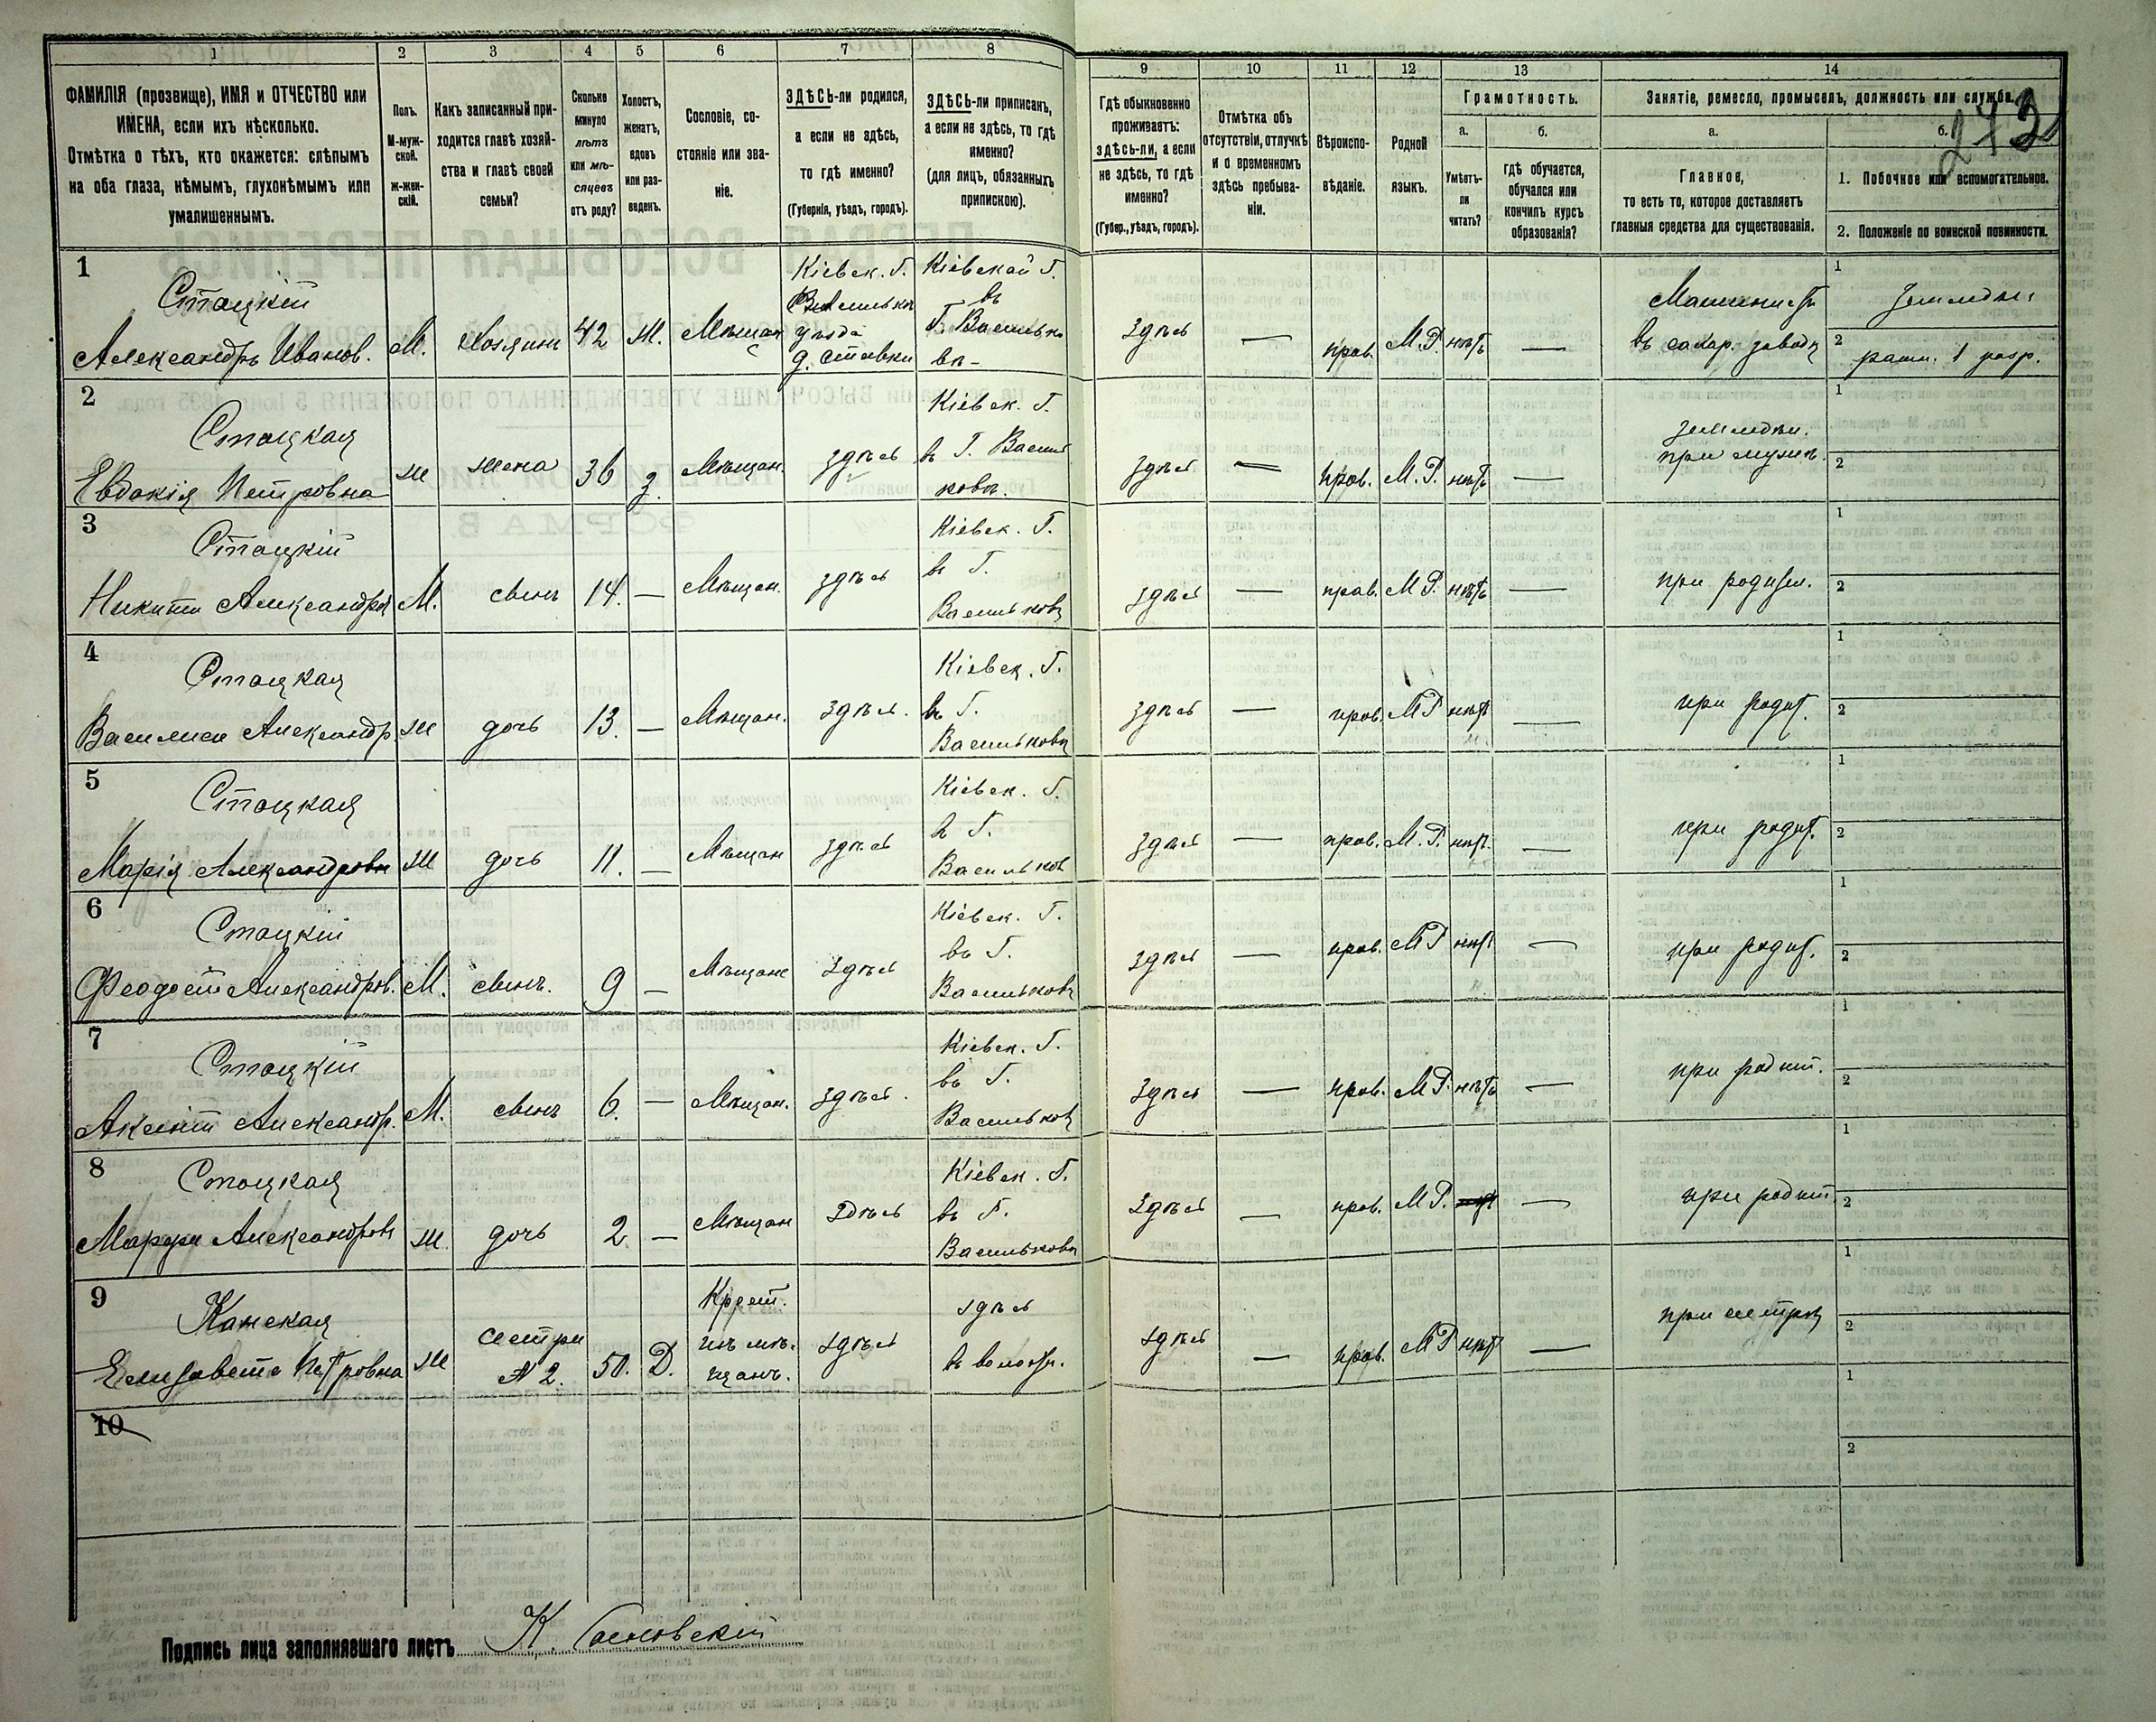 1 2 3 4 5 6 7 8 9 10 11 12 13 14
ФАМИЛІЯ (прозвище), ИМЯ и ОТЧЕСТВО или
ИМЕНА, если ихъ нѣсколько.
Отмѣтка о тѣхъ, кто окажется: слѣпымъ
на оба глаза, нѣмымъ, глухонѣмымъ или
умалишеннымъ.
Полъ.
М-муж-
ской.
ж-жен-
скій.
Какъ записанный при-
ходится главѣ хозяй-
ства и главѣ своей
семьи?
Сколько
минуло
лѣтъ
или мѣ-
сяцевъ
отъ роду?
Холостъ,
женатъ,
вдовъ
или раз-
веденъ.
Сословіе, со-
стояніе или зва-
ніе.
ЗДѢСЬ-ли родился,
а если не здѣсь,
то гдѣ именно?
(Губернія, уѣздъ, городъ).
ЗДѢСЬ-ли приписанъ,
а если не здѣсь, то гдѣ
именно?
(для лицъ, обязанныхъ
припискою).
Гдѣ обыкновенно
проживаетъ:
здѣсь-ли, а если
не здѣсь, то гдѣ
именно?
(Губер., уѣздъ, городъ).
Отмѣтка объ
отсутствіи, отлучкѣ
и о временномъ
здѣсь пребыва-
ніи.
Вѣроиспо-
вѣданіе.
Родной
языкъ.
Грамотность.
а.
Умѣетъ-
ли
читать?
б.
Гдѣ обучается,
обучался или
кончилъ курсъ
образованія?
Занятіе, ремесло, промыселъ, должность или служба.
а.
Главное,
то есть то, которое доставляетъ
главныя средства для существованія.
б.
1. Побочное или вспомогательное.
2. Положеніе по воинской повинности.
1
Стацкій
Александръ Иванов.
М.
Хозяинъ
42
Ж.
Мѣщан
Кіевск. Г.
уѣзда
д. Ставки
Кіевской Г.
въ
Г. Василько
вѣ
здѣсь
—
прав.
М.Р.
нѣтъ
—
Машинистъ
въ сахар. заводѣ
1
земледѣл
2
ратн. 1 разр.
2
Стацкая
Евдокія Петровна
ж
жена
36
з.
Мѣщан.
здѣсь
Кіевск. Г.
въ Г. Васил
ковѣ.
здѣсь
—
прав.
М.Р.
нѣтъ
—
земледѣл.
при мужѣ.
1
2
3
Стацкій
Никита Александров
М.
сынъ
14.
—
Мѣщан.
здѣсь
Кіевск. Г.
въ Г.
Васильковѣ
здѣсь
—
прав.
М.Р.
нѣтъ
—
при родител.
1
2
4
Стацкая
Василиса Александр.
ж
дочь
13.
—
Мѣщан.
здѣсь.
Кіевск. Г.
въ Г.
Васильковѣ
здѣсь
—
прав.
МР
нѣтъ
—
при родит.
1
2
5
Стацкая
Марія Александровн
ж
дочь
11.
—
Мѣщан
здѣсь
Кіевск. Г.
в Г.
Васильков
здѣсь
—
прав.
М.Р.
нѣт.
—
при родит.
1
2
6
Стацкій
Феодосій Александров.
М.
сынъ.
9
—
Мѣщане
здѣсь
Кіевск. Г.
въ Г.
Васильковѣ
здѣсь
—
прав.
МР
нѣт
—
при родит.
1
2
7
Стацкій
Александр.
М.
сынъ
6.
—
Мѣщан.
здѣсь.
Кіевск. Г.
въ Г.
Васильковѣ
здѣсь
—
прав.
МР.
нѣтъ
—
при родит.
1
2
8
Стацкая
Марфа Александровн
ж.
дочь
2
—
Мѣщан
здѣсь
Кіевск. Г.
въ Г.
Васильковѣ
здѣсь
—
прав.
М.Р.
—
при родит.
1
2
9
Канская
Елизавета Петровна
ж
сестра
№ 2.
50.
В.
Крест.
изъ мѣ-
щанъ.
здѣсь
здѣсь
в волости.
здѣсь
—
прав.
МР
нѣт
—
при сестрѣ
1
2
10
1
2
Подпись лица заполнявшаго листъ К.